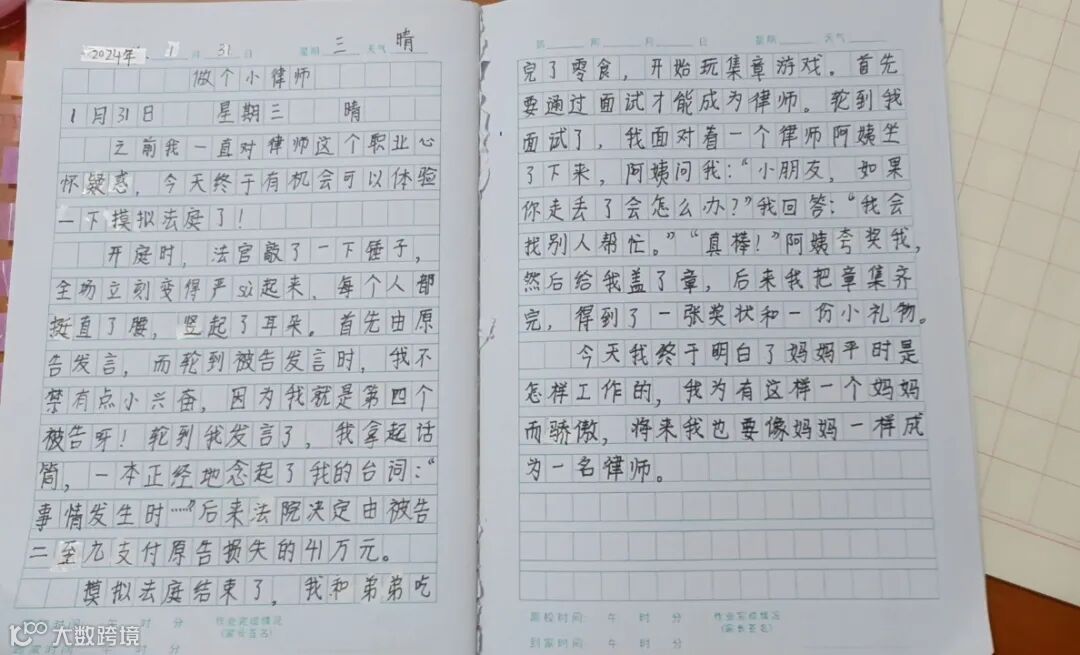 2024年 1月 31日 星期 三 天气 晴
做个小律师
1月31日 星期三 晴
之前我一直对律师这个职业心
怀疑惑，今天终于有机会可以体验
一下摸拟法庭了！
开庭时，法官敲了一下锤子，
全场立刻变得严sù起来，每个人都
挺直了腰，竖起了耳朵。首先由原
告发言，而轮到被告发言时，我不
禁有点小兴奋，因为我就是第四个
被告呀！轮到我发言了，我拿起话
筒，一本正经地念起了我的台词：“
事情发生时……”后来法院决定由被告
二至九支付原告损失的41万元。
摸拟法庭结束了，我和弟弟吃
时间： 午 时 分 作业完成情况
(家长签名)
到家时间： 午 时 分
大数跨境
第 周 月 日 星期 天气
完了零食，开始玩集章游戏。首先
要通过面试才能成为律师。轮到我
面试了，我面对着一个律师阿姨坐
了下来，阿姨问我：“小朋友，如果
你走丢了会怎么办？”我回答：“我会
找别人帮忙。”“真棒！”阿姨夸奖我，
然后给我盖了章，后来我把章集齐
完，得到了一张奖状和一份小礼物。
今天我终于明白了妈妈平时是
怎样工作的，我为有这样一个妈妈
而骄傲，将来我也要像妈妈一样成
为一名律师。
离校时间： 午 时 分 作业完成情况
(家长签名)
到家时间： 午 时 分